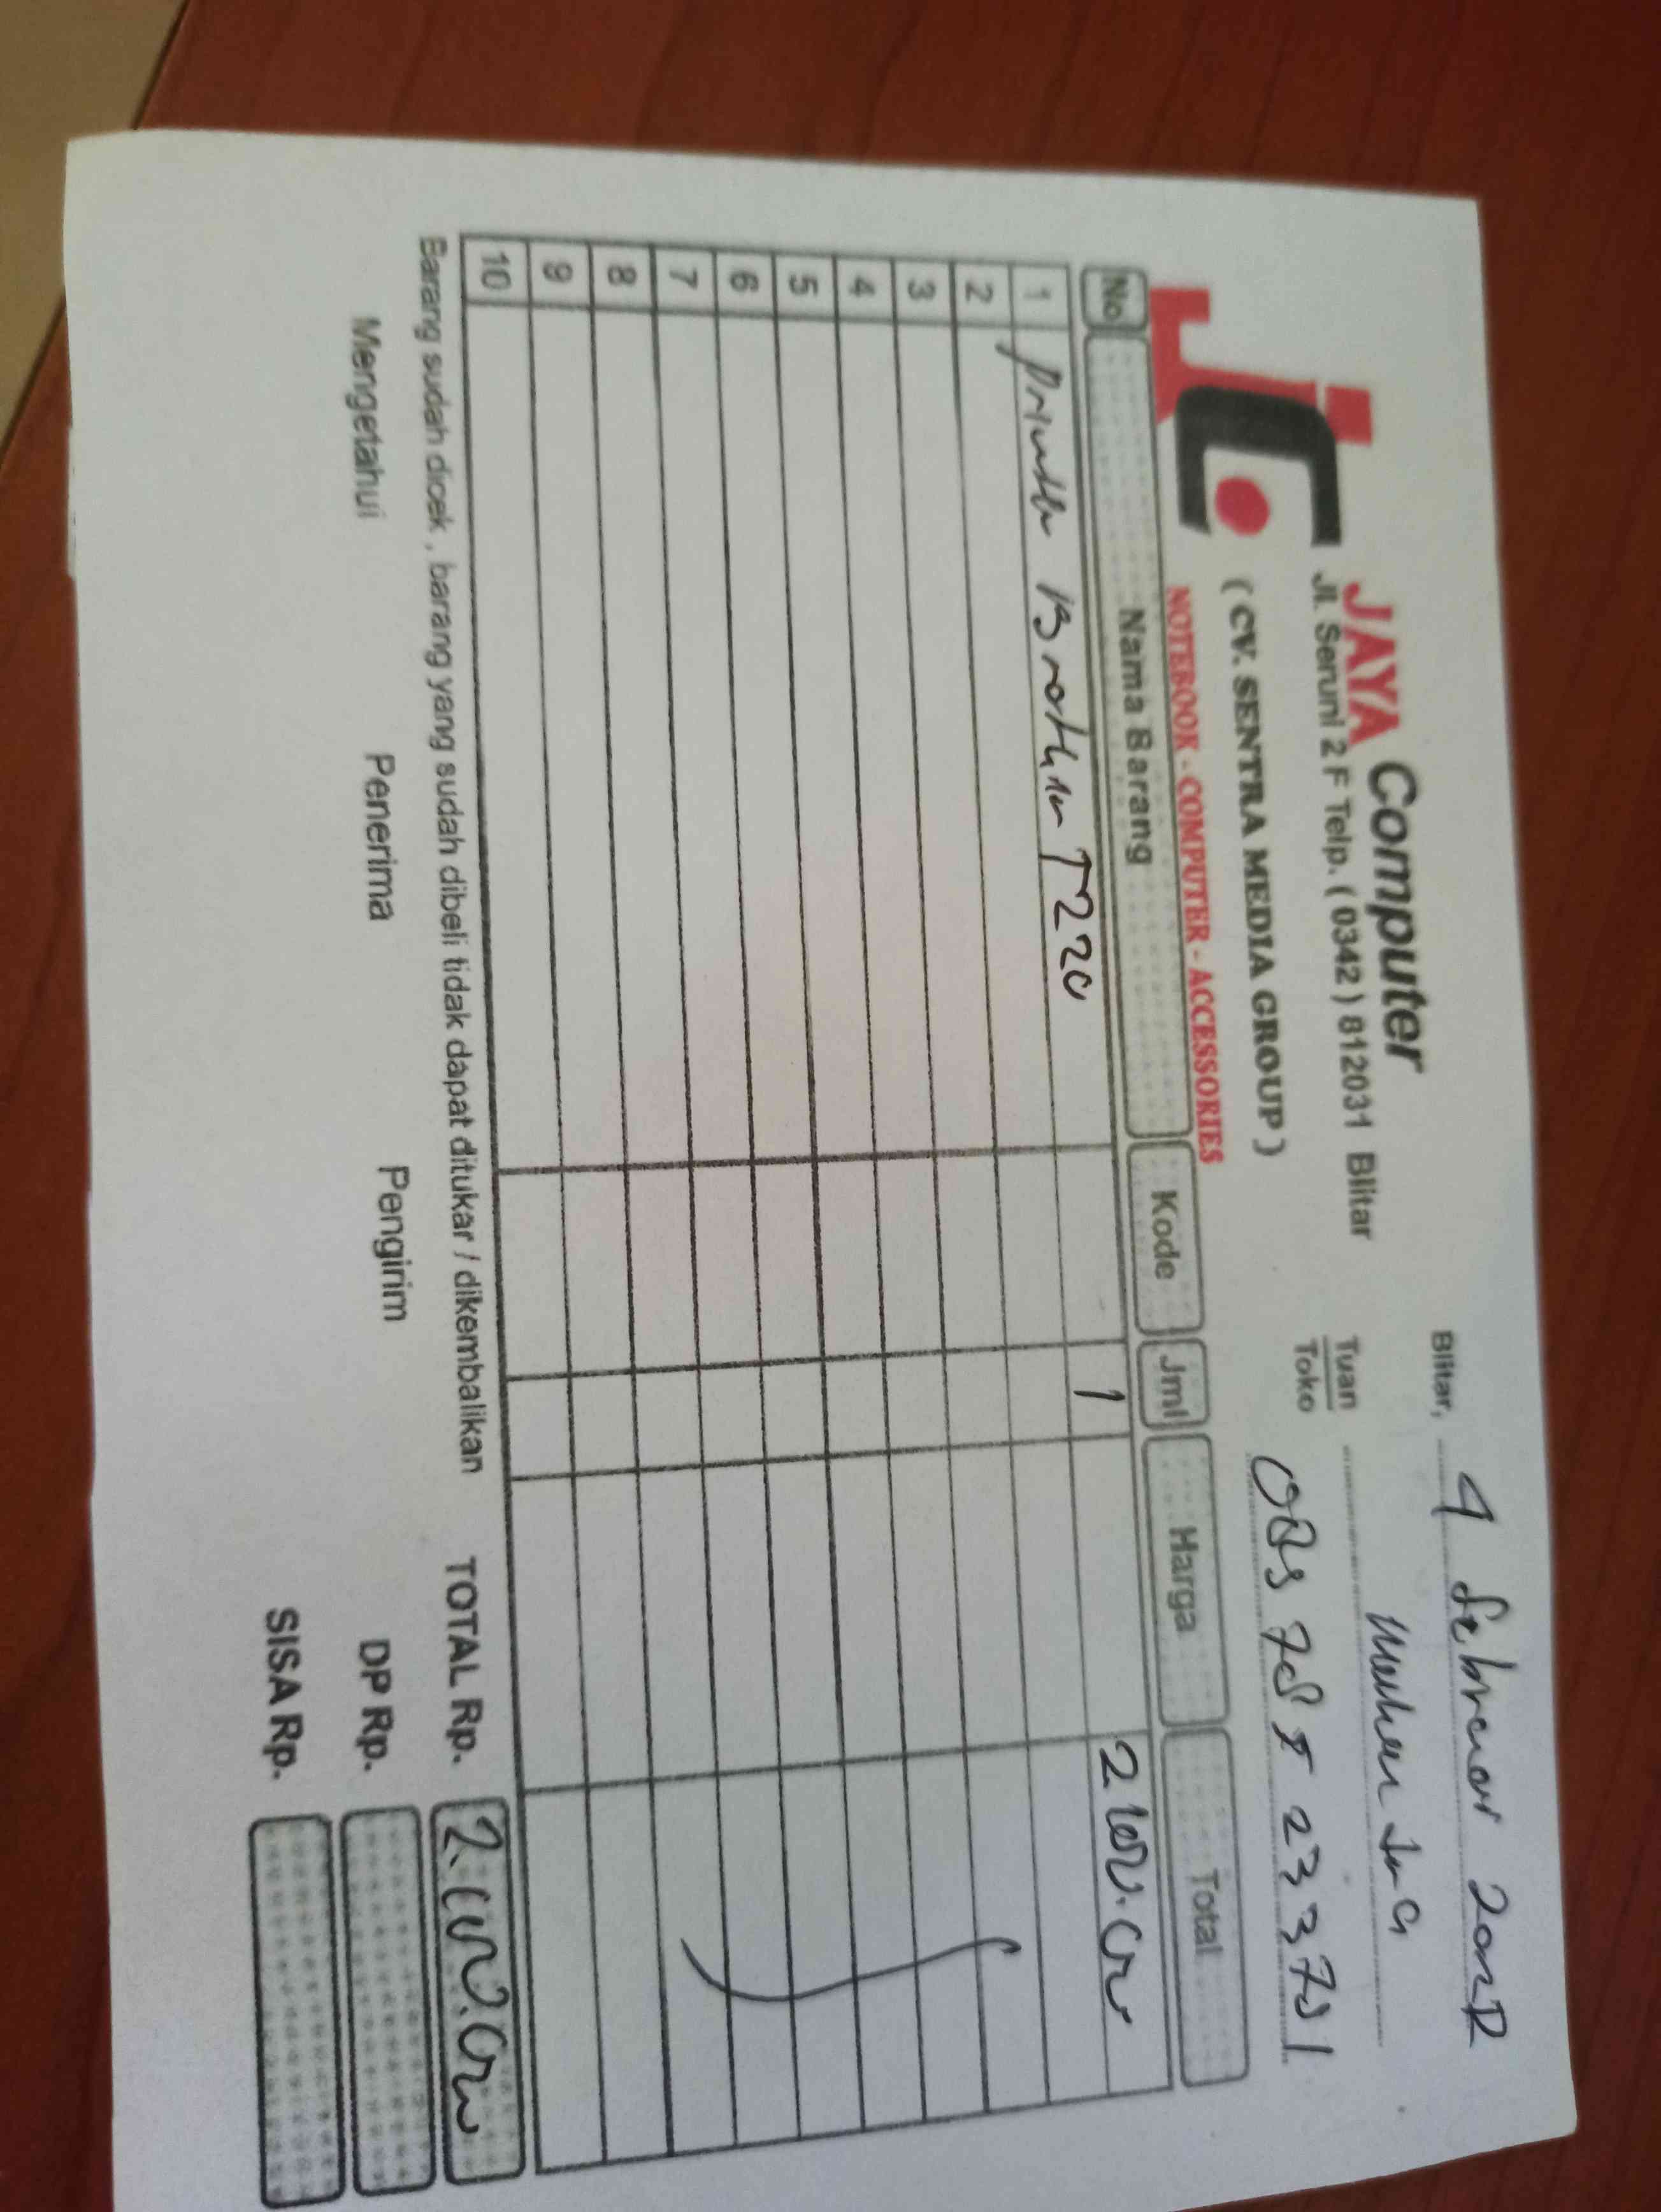 JAYA Computer
Jl. Seruni 2 F Telp. ( 0342 ) 812031 Blitar
( CV. SENTRA MEDIA GROUP )
NOTEBOOK - COMPUTER - ACCESSORIES
Blitar, 4 Februar
Tuan
Toko
No Nama Barang Kode Jml Harga Total
1 Brother T220 1
2
3
4
5
6
7
8
9
10
Barang sudah dicek , barang yang sudah dibeli tidak dapat ditukar / dikembalikan
TOTAL Rp.
Mengetahui Penerima Pengirim
DP Rp.
SISA Rp.